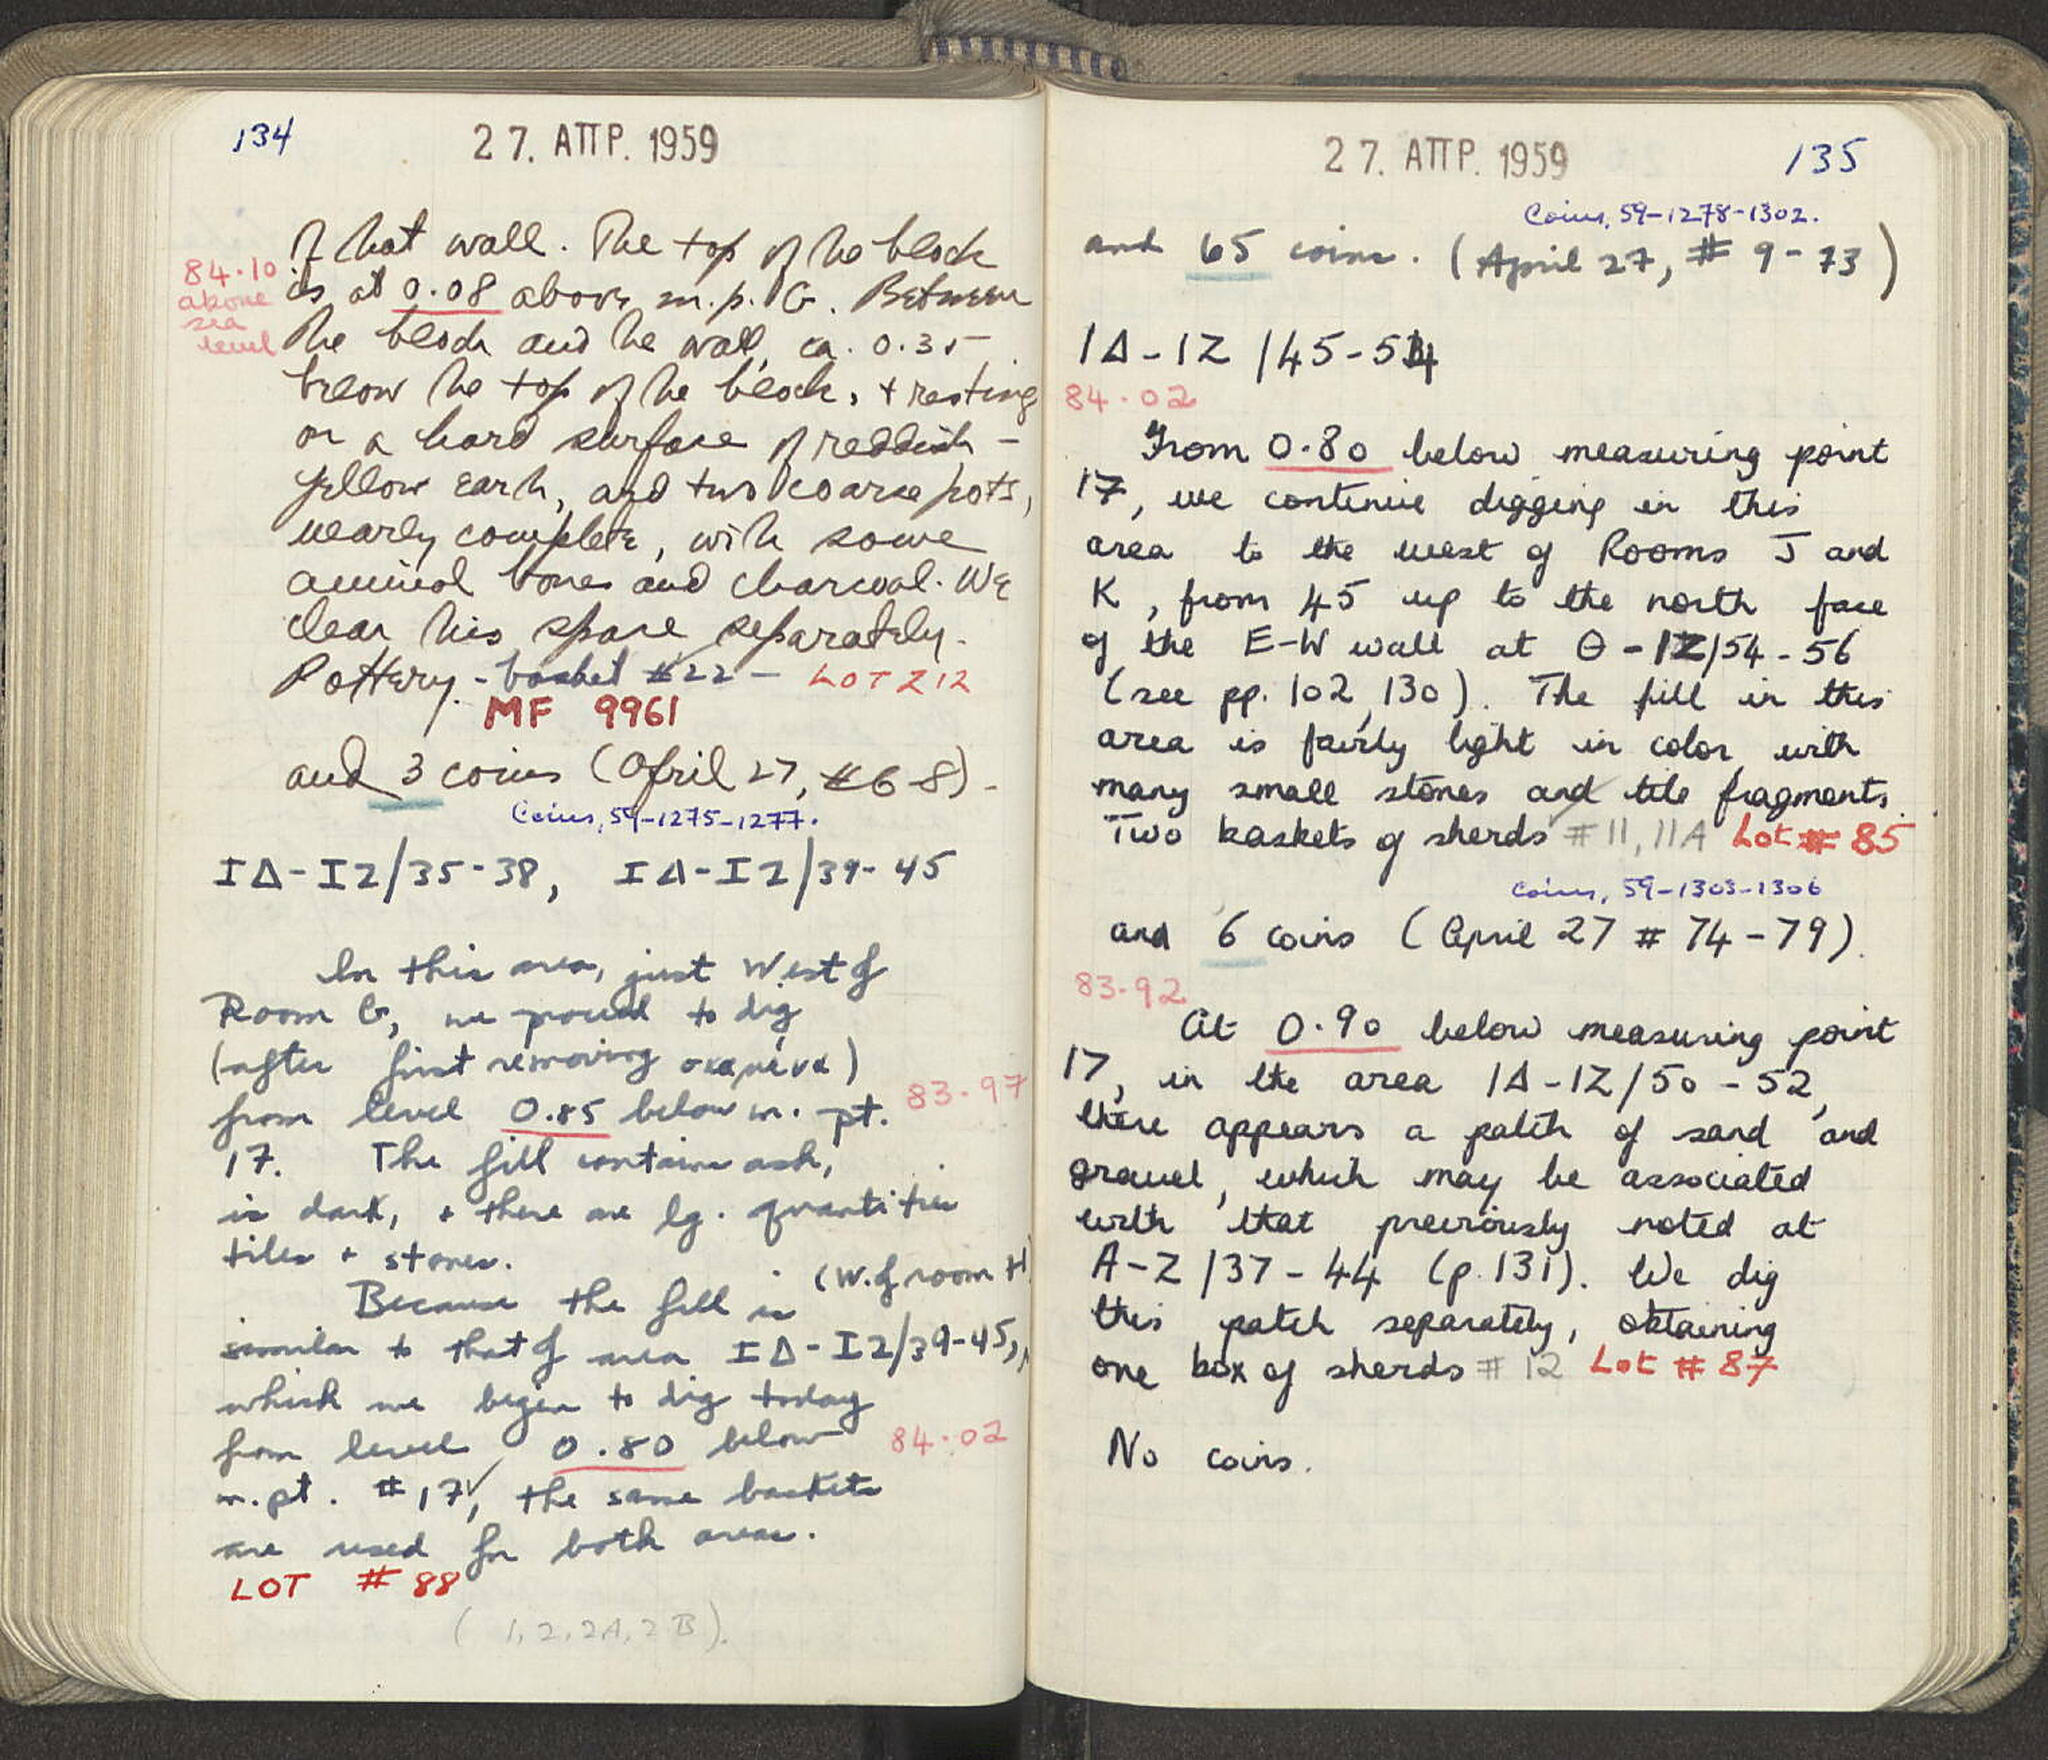 134
27. ΑΠΡ. 1959
of that wall. The top of the block
is at 0.08 above m.p. G. Between
84.10
above
sea
level
the block and the wall, ca. 0.35
below the top of the block, + resting
on a hard surface of reddish-
yellow earth, are two coarse pots,
nearly complete, with some
animal bones and charcoal. We
clear this space separately.
Pottery - basket #22 - LOT 212
MF 9961
and 3 coins (April 27, #6-8).
Coins, 59-1275-1277.
ΙΔ-ΙΖ/35-38, ΙΔ-ΙΖ/39-45
In this area, just West of
Room G, we proceed to dig
(after first removing
from level 0.85 below m. pt. 83.97
17. The fill contains ash,
is dark, + there are lg. quantities
tiles + stones.
Because the fill is (W. of room H)
similar to that of area ΙΔ-ΙΖ/39-45,
which we begin to dig today
from level 0.80 below 84.02
m.pt. #17, the same baskets
are used for both areas.
LOT # 88
(1, 2, 2A, 2B).
27. ΑΠΡ. 1959
135
Coins, 59-1278-1302.
and 65 coins. (April 27, # 9-73)
ΙΔ-ΙΖ/45-54
84.02
From 0.80 below measuring point
17, we continue digging in this
area to the west of Rooms J and
K, from 45 up to the north face
of the E-W wall at Θ-ΙΖ/54-56
(see pp. 102, 130). The fill in this
area is fairly light in color with
many small stones and tile fragments.
Two baskets of sherds #11, 11A Lot # 85
Coins, 59-1303-1306
and 6 coins (April 27 # 74-79).
83.92
At 0.90 below measuring point
17, in the area ΙΔ-ΙΖ/50-52,
there appears a patch of sand and
gravel, which may be associated
with that previously noted at
Α-Ζ/37-44 (p. 131). We dig
this patch separately, obtaining
one box of sherds #12 Lot # 87
No coins.